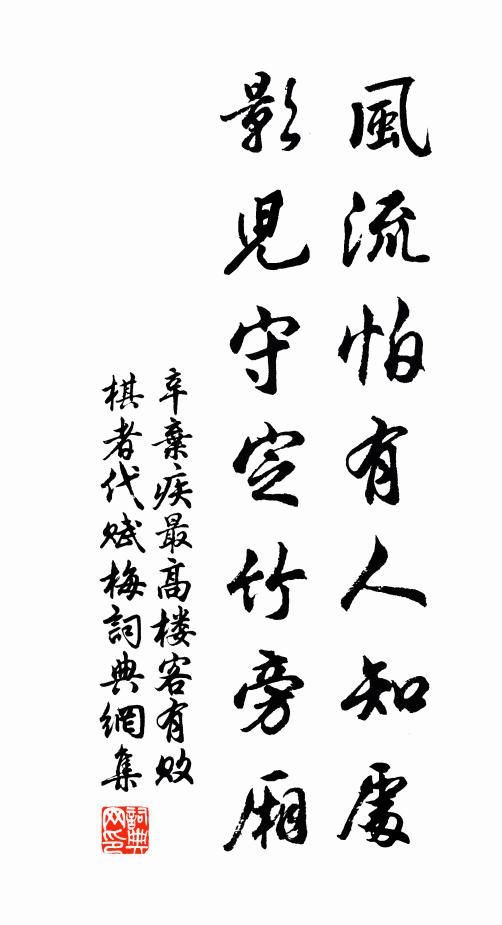 風流怕有人知處
影児守定竹旁厢
辛棄疾最高楼客有败
棋者代赋梅詞典網集
詞典网印